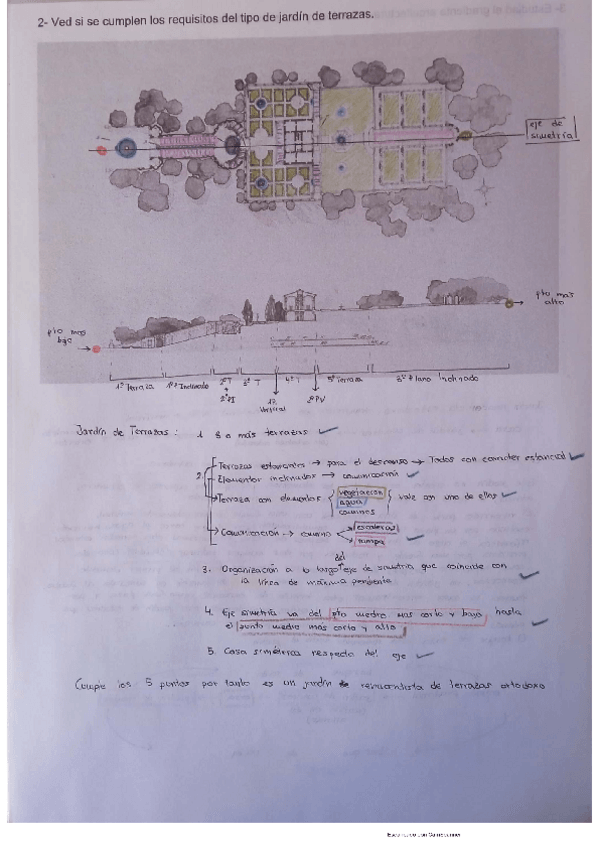 2- Ved si se cumplen los requisitos del tipo de jardín de terrazas.
eje de
simetría
pto mas
alto
pto mas
bajo
1ª Terraza
1º P. Inclinado
2ª T
3ª T
4ª T
5ª Terraza
3º Plano Inclinado
2º PI
1P.
Vertical
2º PV
Jardín de Terrazas : 1 3 o más terrazas
2 Terrazas estanciales → para el descanso → Todas con caracter estancial
Elementos inclinados → comunicación
Terraza con elementos vegetacion
agua
comunes
vale con uno de ellos
Comunicación → camino escaleras
rampa
3. Organización a lo largo del eje de simetría que coincide con
la línea de máxima pendiente
4. Eje simetría va del pto medio mas corto y bajo hasta
el punto medio mas corto y alto
5. Casa simétrica respecto del eje
Cumple los 5 puntos por tanto es un jardín renacentista de terrazas ortodoxo